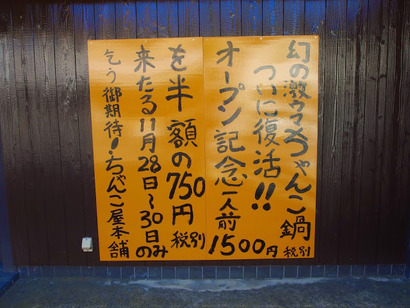 幻の激ウマちゃんこ鍋
ついに復活!!
オープン記念一人前1500円税別
を半額の750円税別
来たる11月28日~30日のみ
乞う御期待!ちゃんこ屋本舗